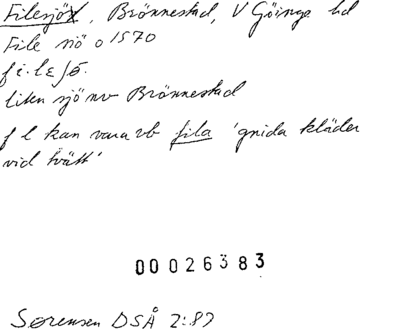 Filesjö, Brönnestad, V Göinge hd
File siö o 1570
fi·lɛʃö.
liten sjö nv Brönnestad
f l kan vara vb fila 'gnida kläder
vid tvätt'
00026383
Sørensen DSÅ 2:87